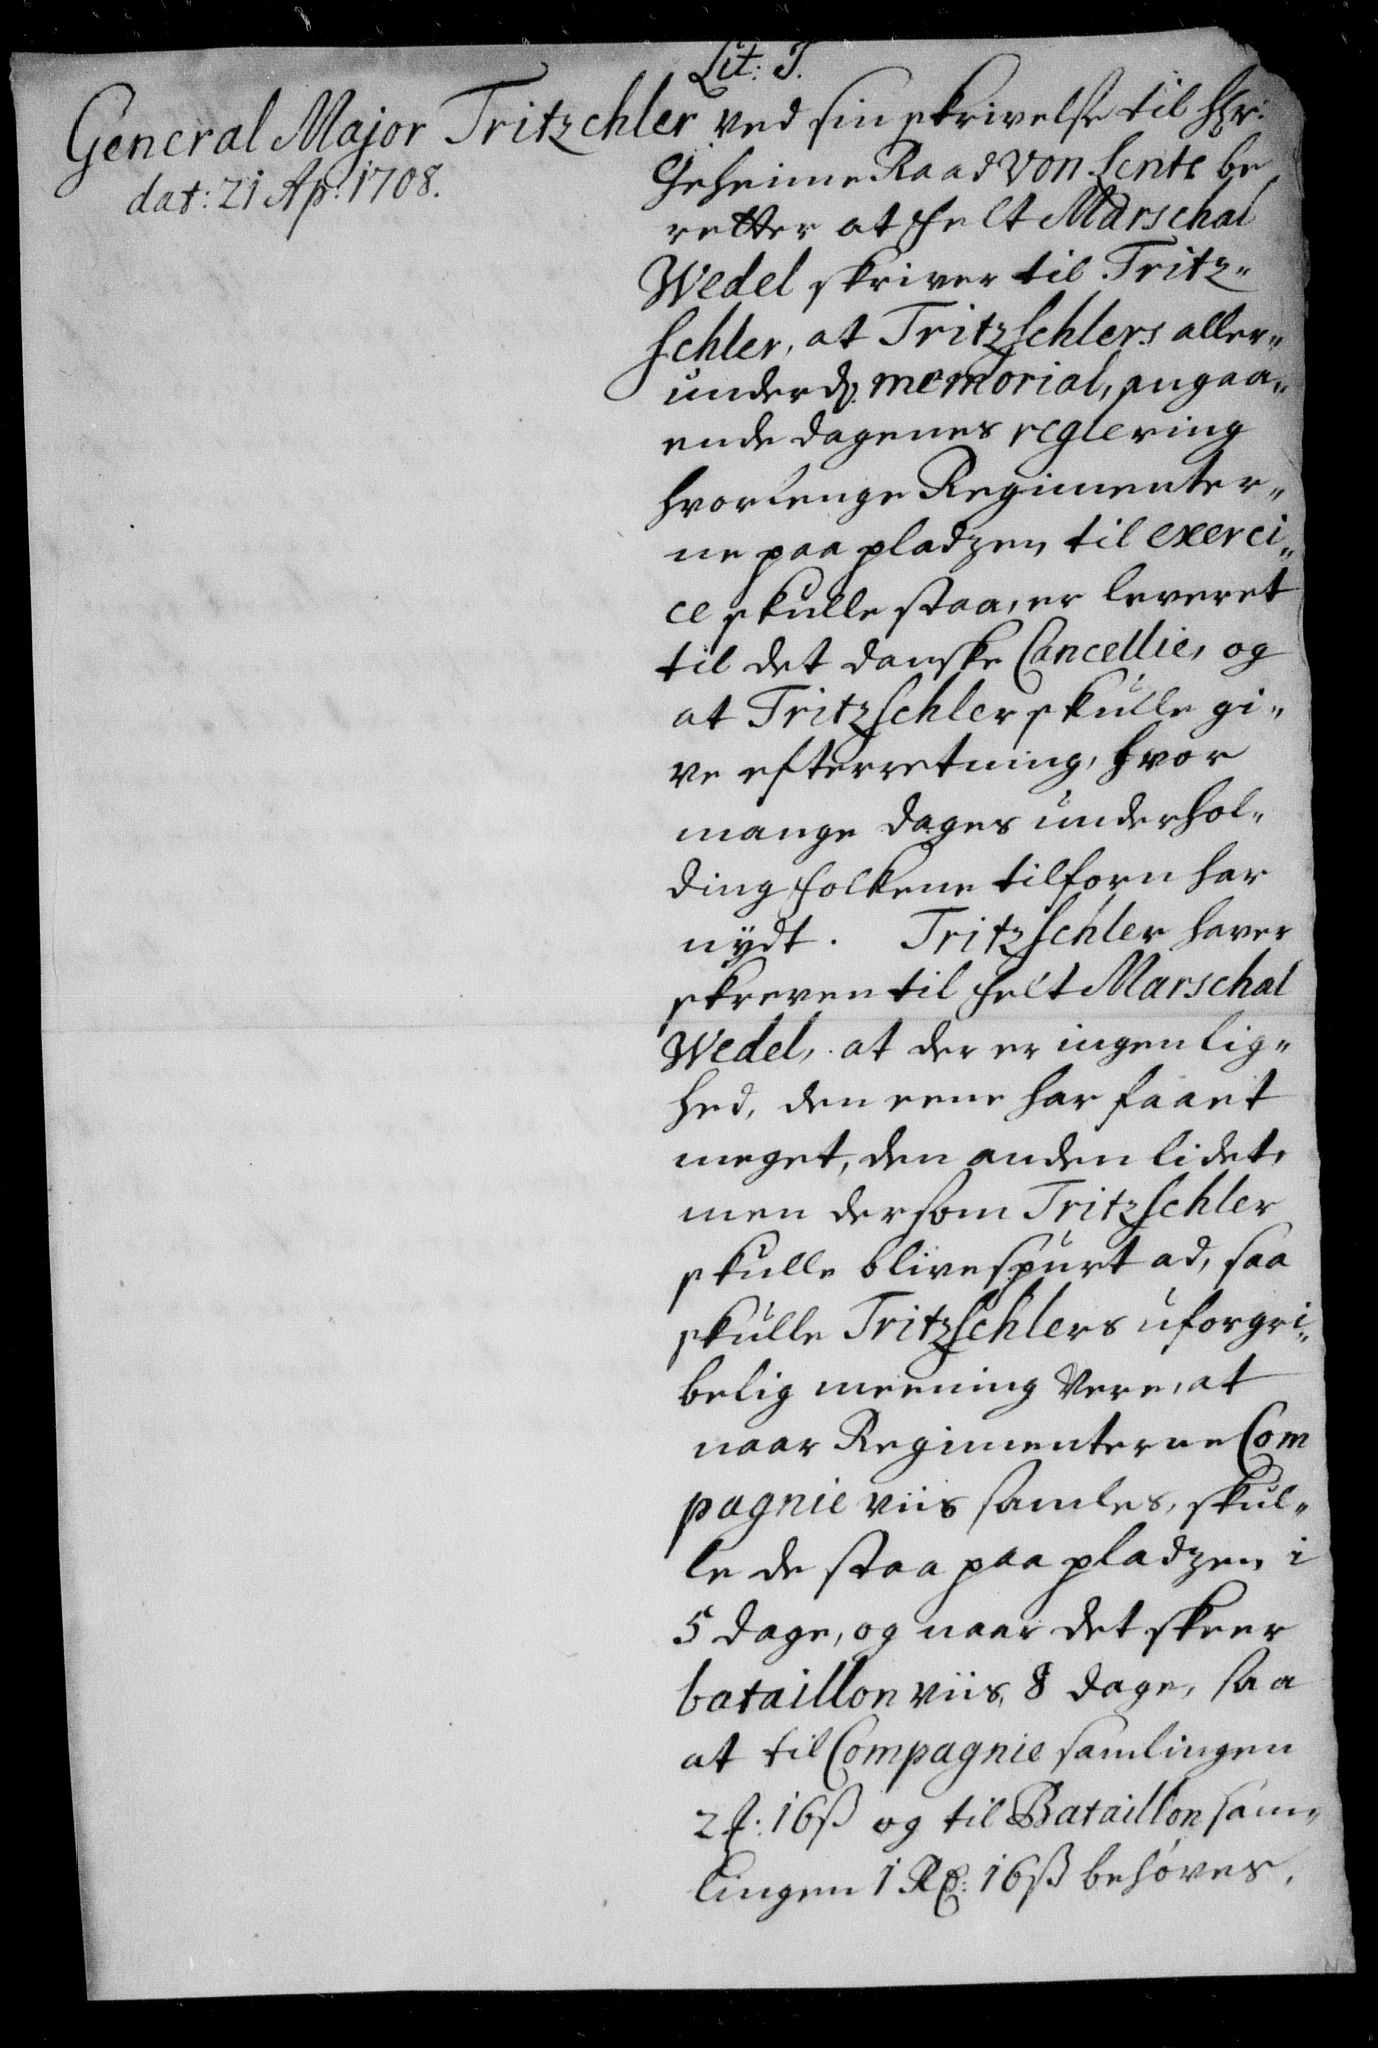 Lit: J.
General Major Tritzchler ved sin skrivelse til Hr:
dat: 21 Ap: 1708.
Geheime Raad Von Lente be
retter at Felt Marschal
Wedel skriver til Tritz„
schler, at Tritzschlers aller„
underd: memorial, angaa„
ende dagenes reglering
hvorlenge Regimenter„
ne paa pladzen til exerci„
ce skulle staa, er leveret
til det danske Cancellie, og
at Tritzschler skulle gi„
ve efterretning, hvor
mange dages underhol„
ding folkene tilforn har
nÿdt. Tritzschler haver
skreven til Felt Marschal
Wedel, at der er ingen lig„
hed, den eene har faaet
meget, den anden lidet,
men dersom Tritzschler
skulle blive spurt ad, saa
skulle Tritzschlers uforgri„
belig meening vere, at
naar Regimenterne Com
pagnie viis samles, skul„
le de staa paa pladzen i
5 dage, og naar det skeer
bataillon viis, 8 dage, saa
at til Compagnie samlingen
2 ƒ: 16 ß og til Bataillon sam„
lingen 1 Rd: 16 ß behøves.